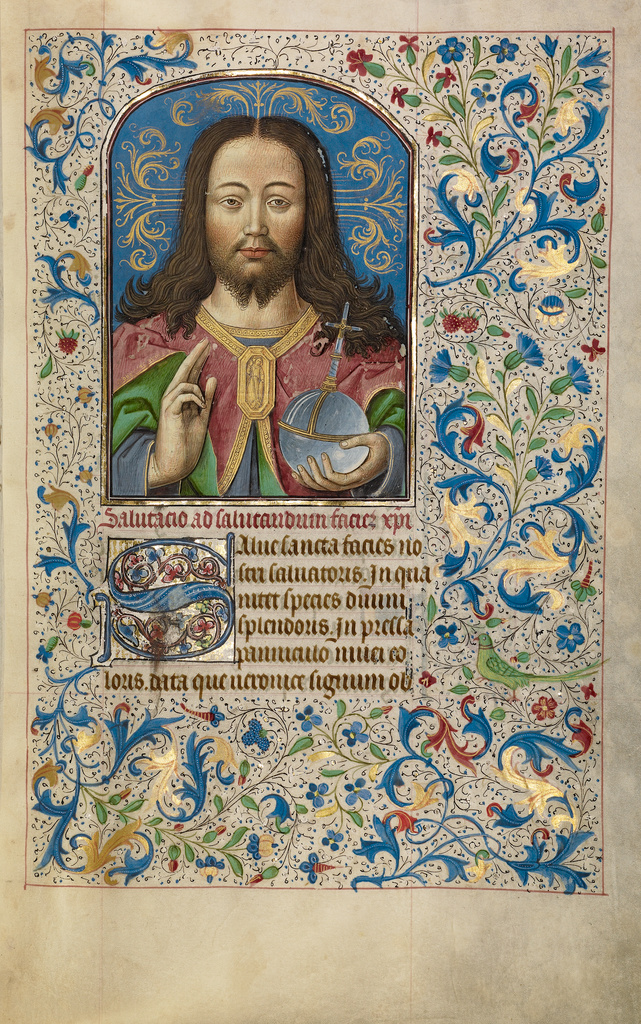 Salutacio ad salutandum faciez xpi
Salue sancta facies no
stri saluatoris. In qua
nitet species diuini
splendoris. In pressa
panniculo niuei co
loris. data que ueronice signum ob